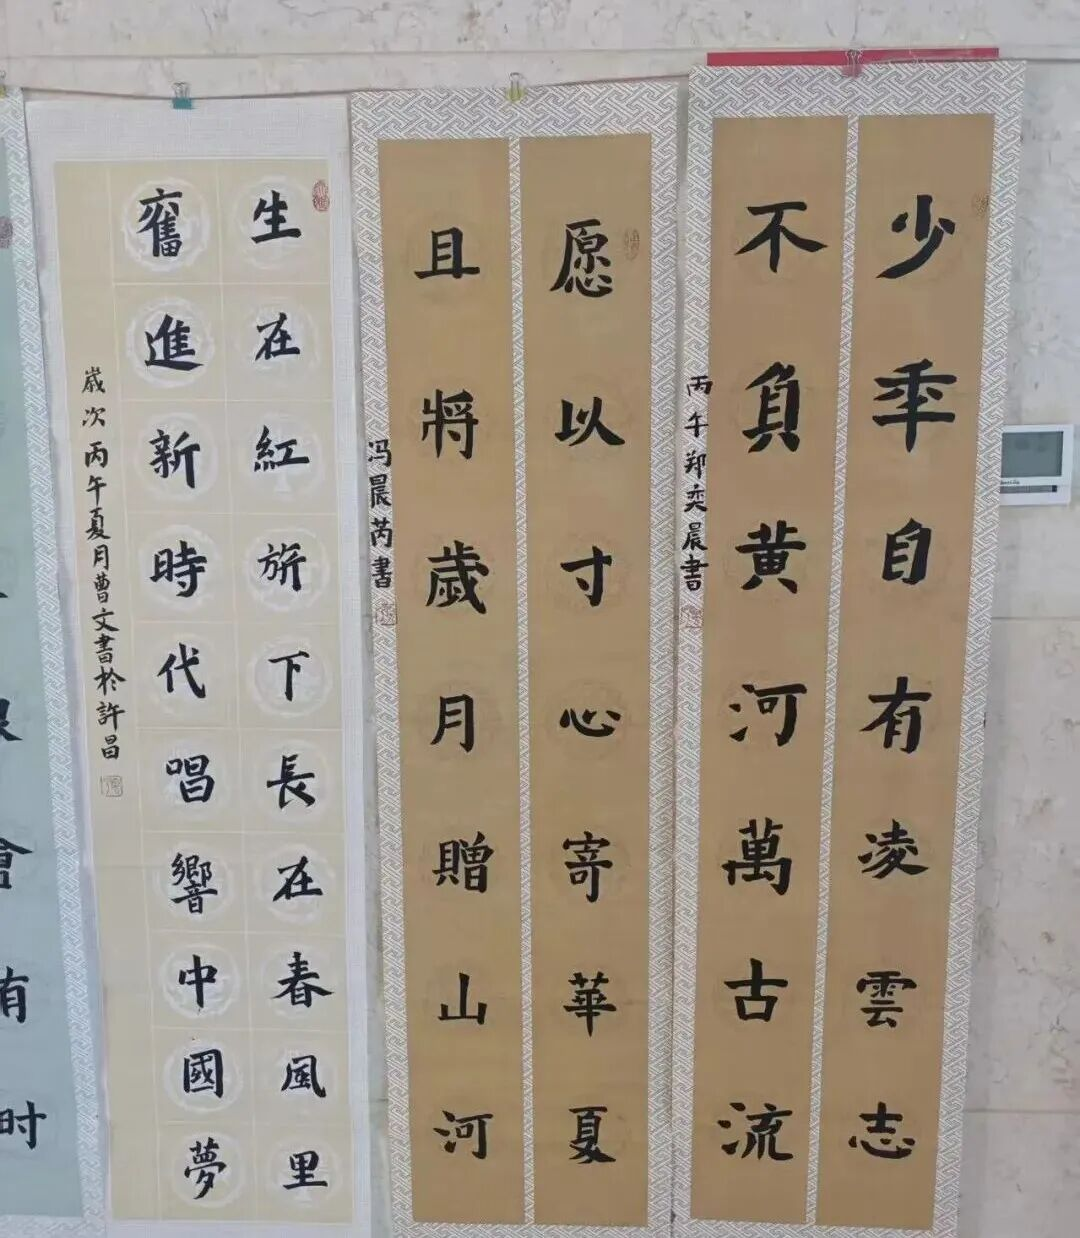 少年自有凌雲志
不負黄河萬古流
丙午郑奕晨書
愿以寸心寄華夏
且將歲月贈山河
冯晨芮書
生在紅旂下長在春風里
奮進新時代唱響中國夢
歲次丙午夏月曹文書於許昌
有时